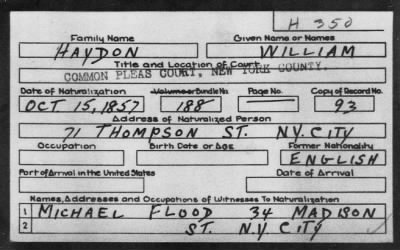 H 350
Family Name Given Name or Names
HAYDON WILLIAM
Title and Location of Court
COMMON PLEAS COURT, NEW YORK COUNTY.
Date of Naturalization Volume or Bundle No. Page No. Copy of Record No.
OCT 15, 1857 188 — 93
Address of Naturalized Person
71 THOMPSON ST. N.Y. CITY
Occupation Birth Date or Age Former Nationality
ENGLISH
Port of Arrival in the United States Date of Arrival
Names, Addresses and Occupations of Witnesses To Naturalization
1 MICHAEL FLOOD 34 MADISON
2 ST. N.Y. CITY